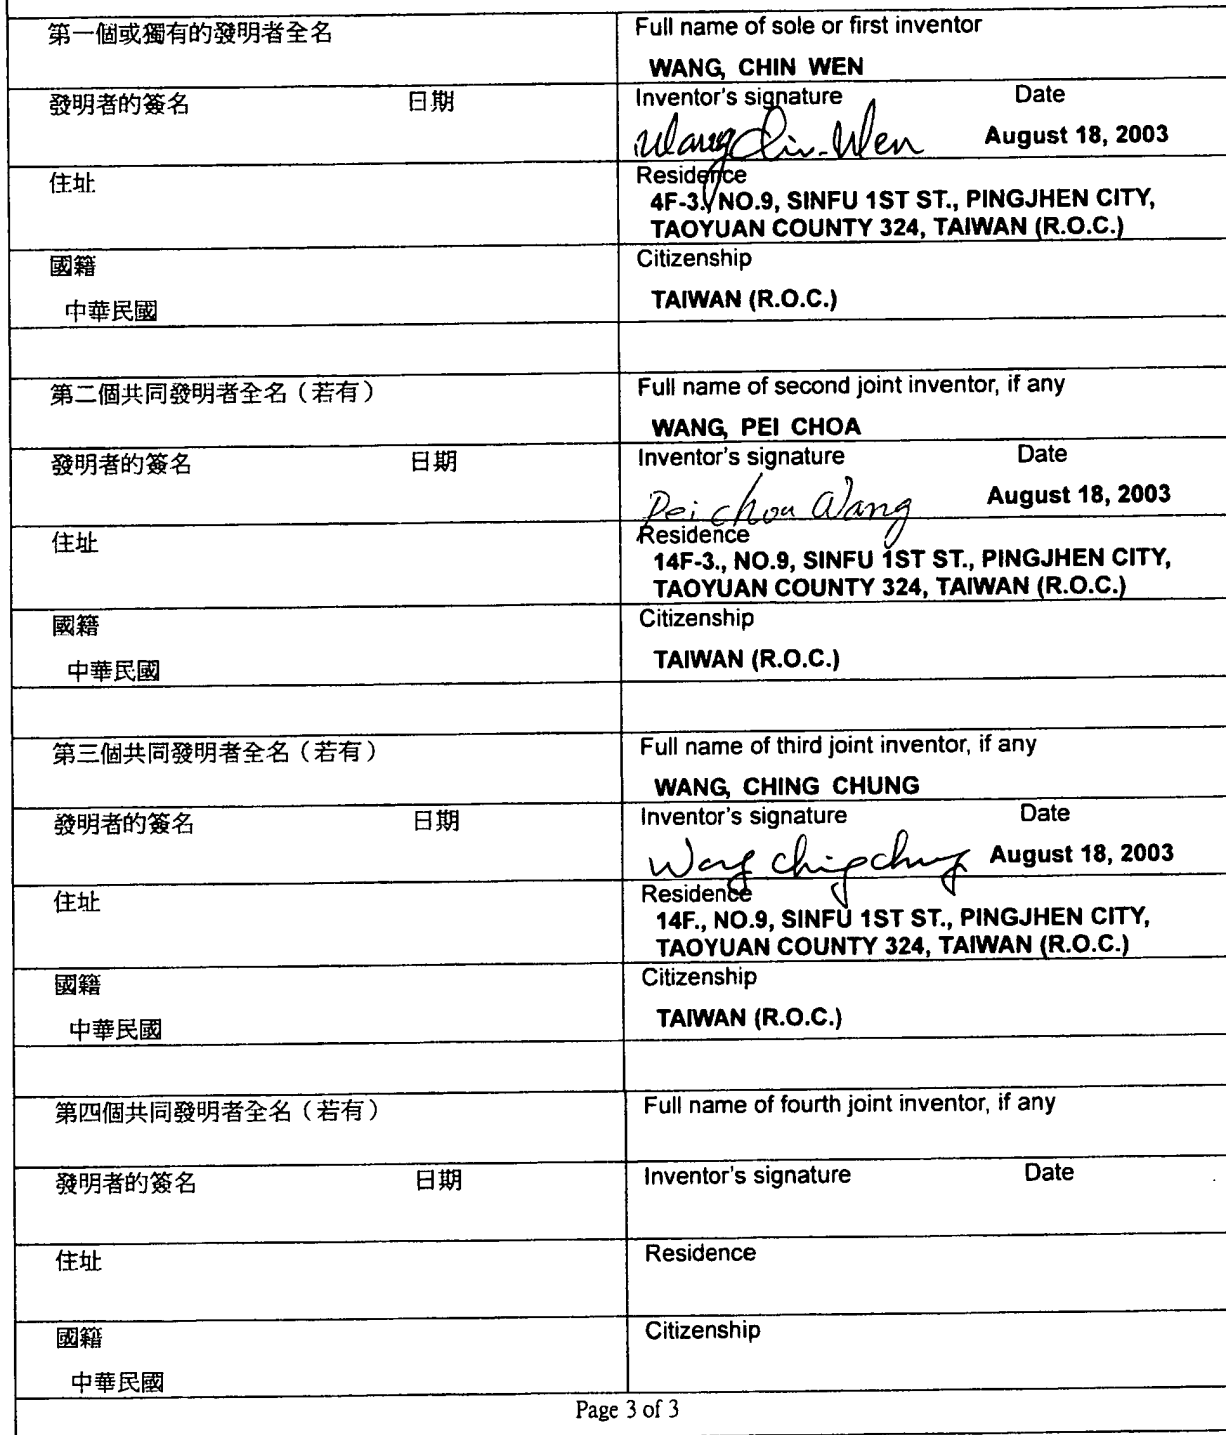 第一個或獨有的發明者全名
Full name of sole or first inventor
WANG, CHIN WEN
發明者的簽名 日期
Inventor's signature Date
Wang Chin-Wen August 18, 2003
住址
Residence
4F-3., NO.9, SINFU 1ST ST., PINGJHEN CITY,
TAOYUAN COUNTY 324, TAIWAN (R.O.C.)
國籍
Citizenship
中華民國
TAIWAN (R.O.C.)
第二個共同發明者全名（若有）
Full name of second joint inventor, if any
WANG, PEI CHOA
發明者的簽名 日期
Inventor's signature Date
Pei choa Wang August 18, 2003
住址
Residence
14F-3., NO.9, SINFU 1ST ST., PINGJHEN CITY,
TAOYUAN COUNTY 324, TAIWAN (R.O.C.)
國籍
Citizenship
中華民國
TAIWAN (R.O.C.)
第三個共同發明者全名（若有）
Full name of third joint inventor, if any
WANG, CHING CHUNG
發明者的簽名 日期
Inventor's signature Date
Wang ching chung August 18, 2003
住址
Residence
14F., NO.9, SINFU 1ST ST., PINGJHEN CITY,
TAOYUAN COUNTY 324, TAIWAN (R.O.C.)
國籍
Citizenship
中華民國
TAIWAN (R.O.C.)
第四個共同發明者全名（若有）
Full name of fourth joint inventor, if any
發明者的簽名 日期
Inventor's signature Date
住址
Residence
國籍
Citizenship
中華民國
Page 3 of 3